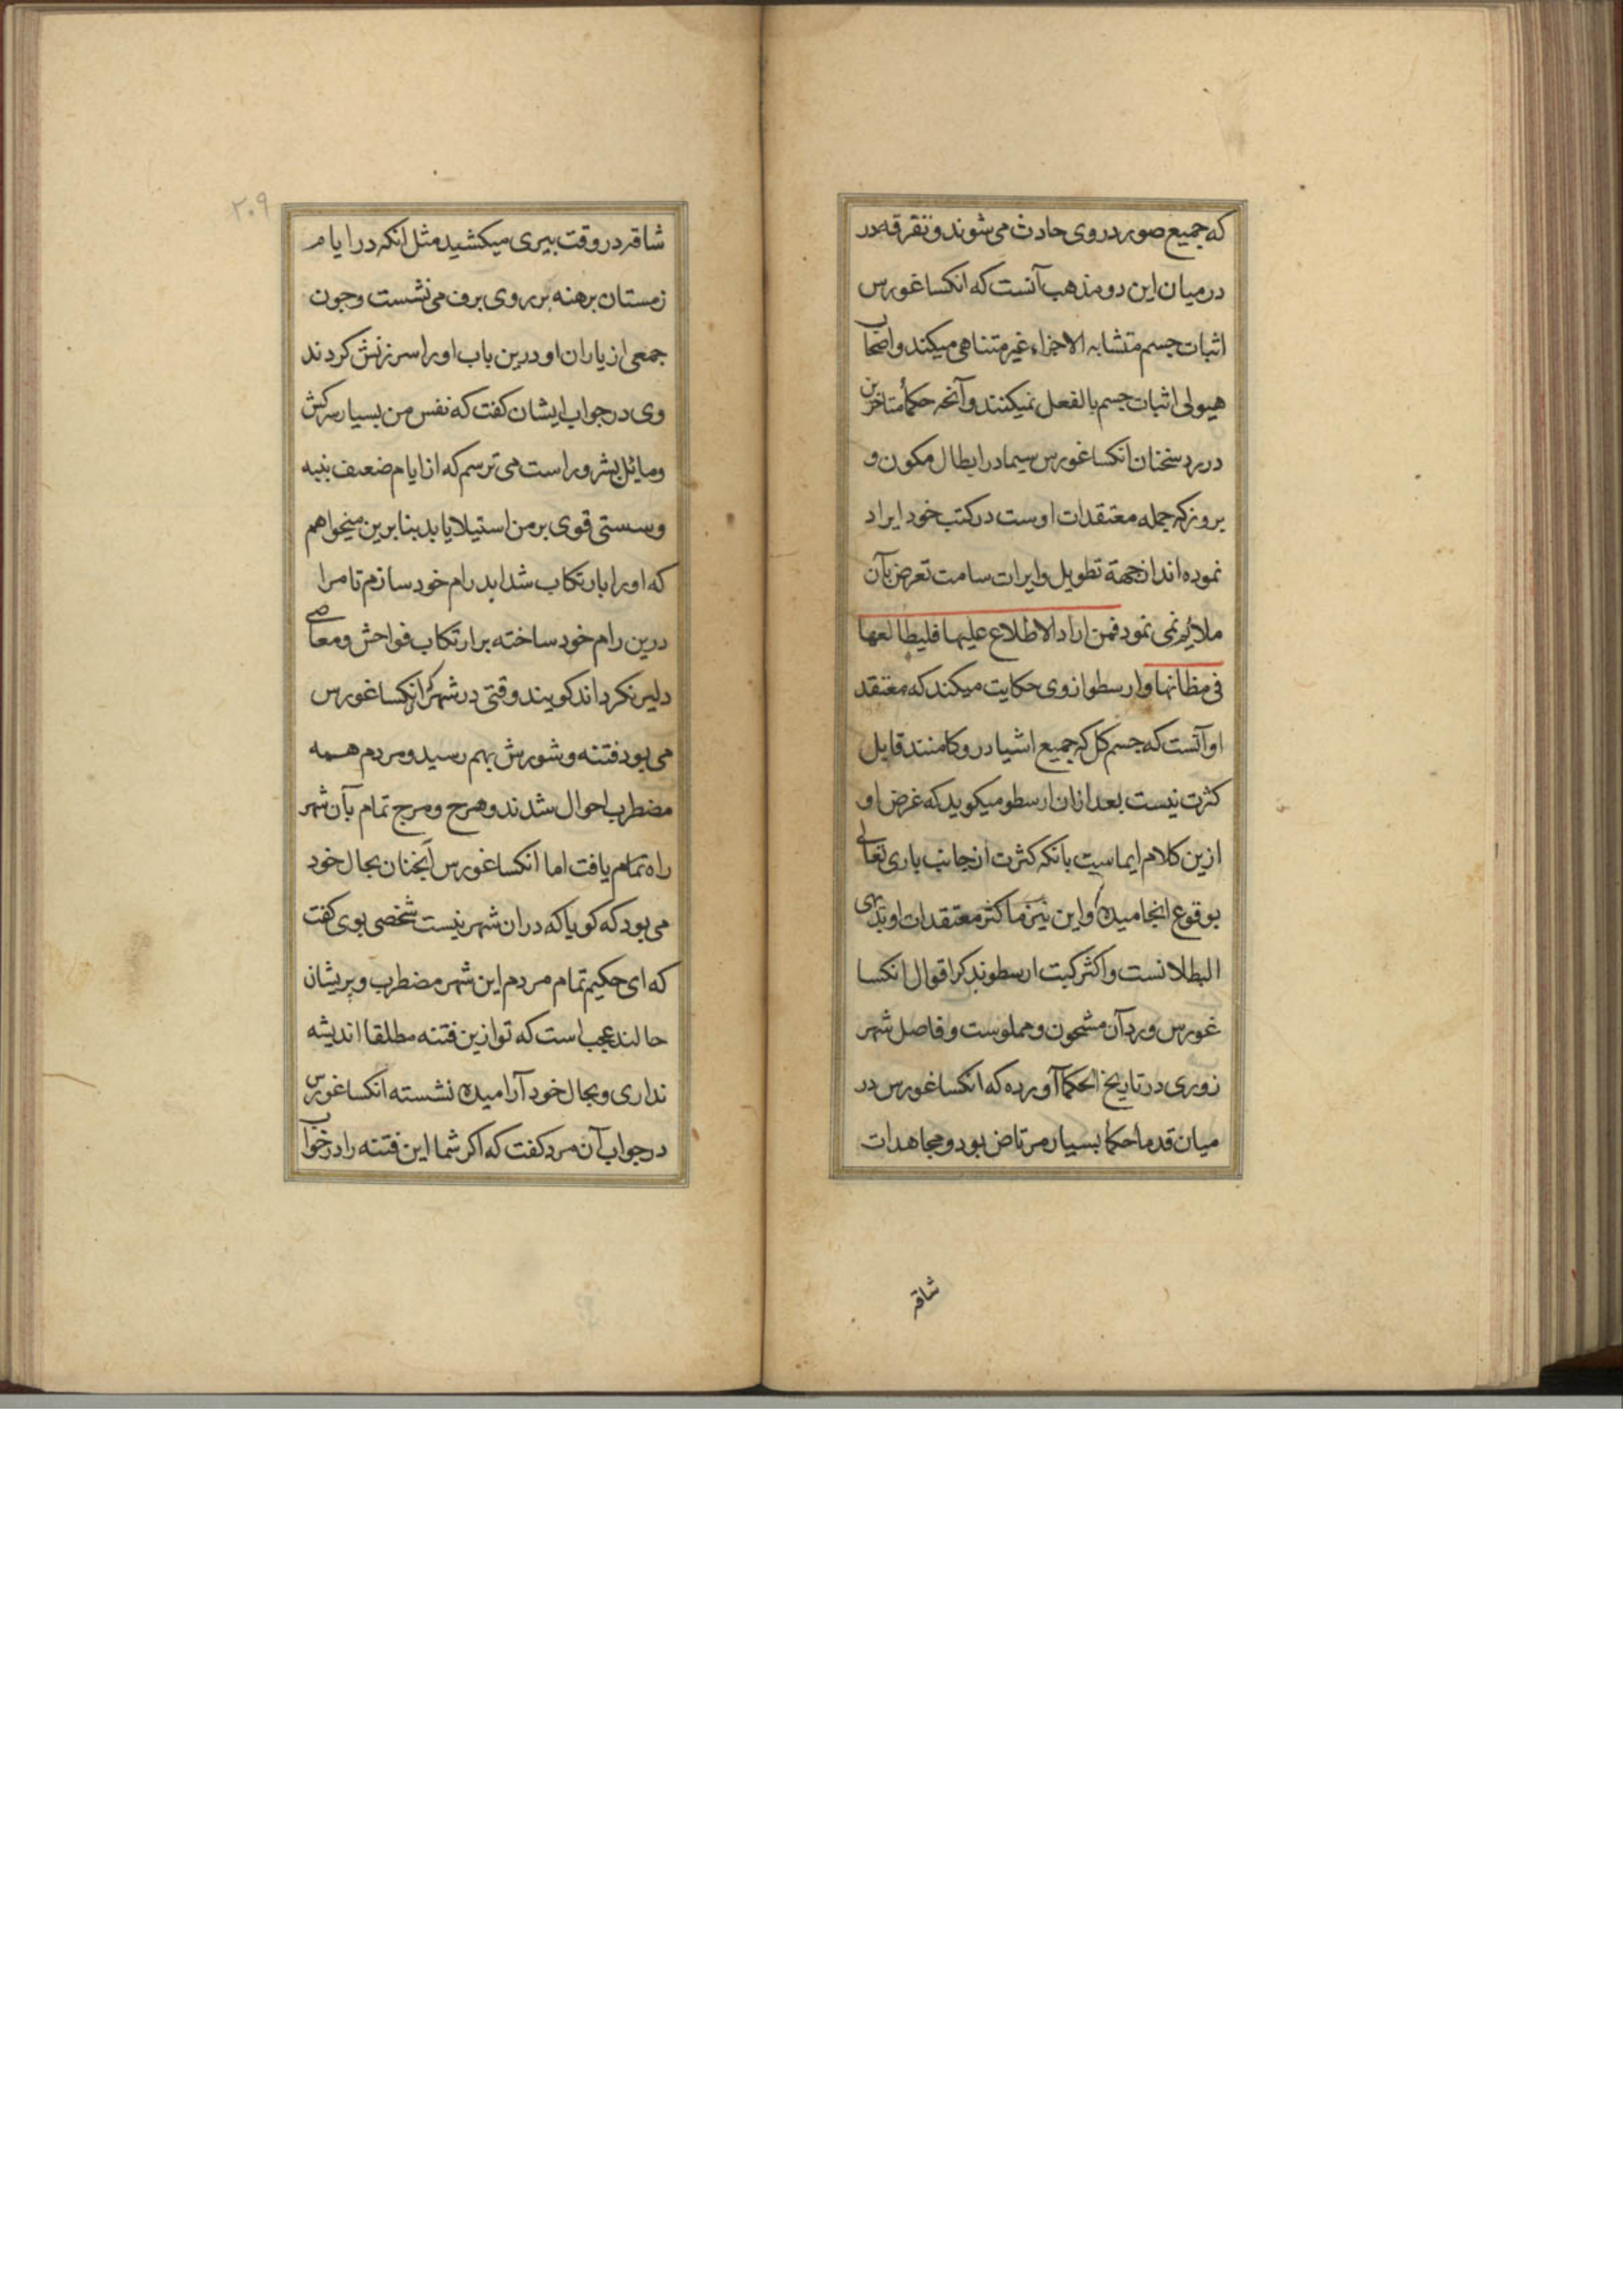 که جمیع صور در وی حادث می شوند و تفرقه در
در میان این دو مذهب آنست که انکساغورس
اثبات جسم متشابه الاجزاء غیر متناهی میکند و اصحاب
هیولی اثبات جسم بالفعل نمیکنند و آنچه حکمأ متاخرین
در رد سخنان انکساغورس سیما در ابطال مکون و
بروز که جمله معتقدات اوست در کتب خود ایراد
نموده اند از جهة تطویل و ایرات سامت تعرض بآن
ملایم نمی نمود فمن اراد الاطلاع علیها فلیطالعها
فی مظانها و ارسطو از وی حکایت میکند که معتقد
او آنست که جسم کل که جمیع اشیا در و کامنند قابل
کثرت نیست بعد ازان ارسطو میکوید که غرض او
ازین کلام ایماست بانکه کثرت از جانب باری تعالی
بوقوع انجامیده و این نیز ما کثر معتقدات او بدیهی
البطلانست و اکثر کتب ارسطو بذکر اقوال انکسا
غورس و رد آن مشحون و مملوست و فاضل شهر
زوری در تاریخ الحکما آورده که انکساغورس در
میان قدما حکما بسیار مرتاض بود و مجاهدات
شاقه
٢٠٩
شاقه در وقت پیری میکشید مثل انکه در ایام
زمستان برهنه بر روی برف می نشست و چون
جمعی از یاران او درین باب او را سرزنش کردند
وی در جواب ایشان کفت که نفس من بسیار سرکش
و مائل بشرور است می ترسم که از ایام ضعف بنیه
و سستی قوی بر من استیلا یابد بنابرین میخواهم
که او را بارتکاب شداید رام خود سازم تا مرا
درین رام خود ساخته بر ارتکاب فواحش و معاصی
دلیر نکرداند کویند وقتی در شهر که انکساغورس
می بود فتنه و شورش بهم رسید و مردم همه
مضطرب احوال شدند و هرج و مرج تمام بآن شهر
راه تمام یافت اما انکساغورس آنچنان بحال خود
می بود که کویا که دران شهر نیست شخصی بوی کفت
که ای حکیم تمام مردم این شهر مضطرب و پریشان
حالند عجب است که تو ازین فتنه مطلقا اندیشه
نداری و بحال خود آرامیده نشسته انکساغورس
در جواب آن مرد کفت که اکر شما این فتنه را در خواب